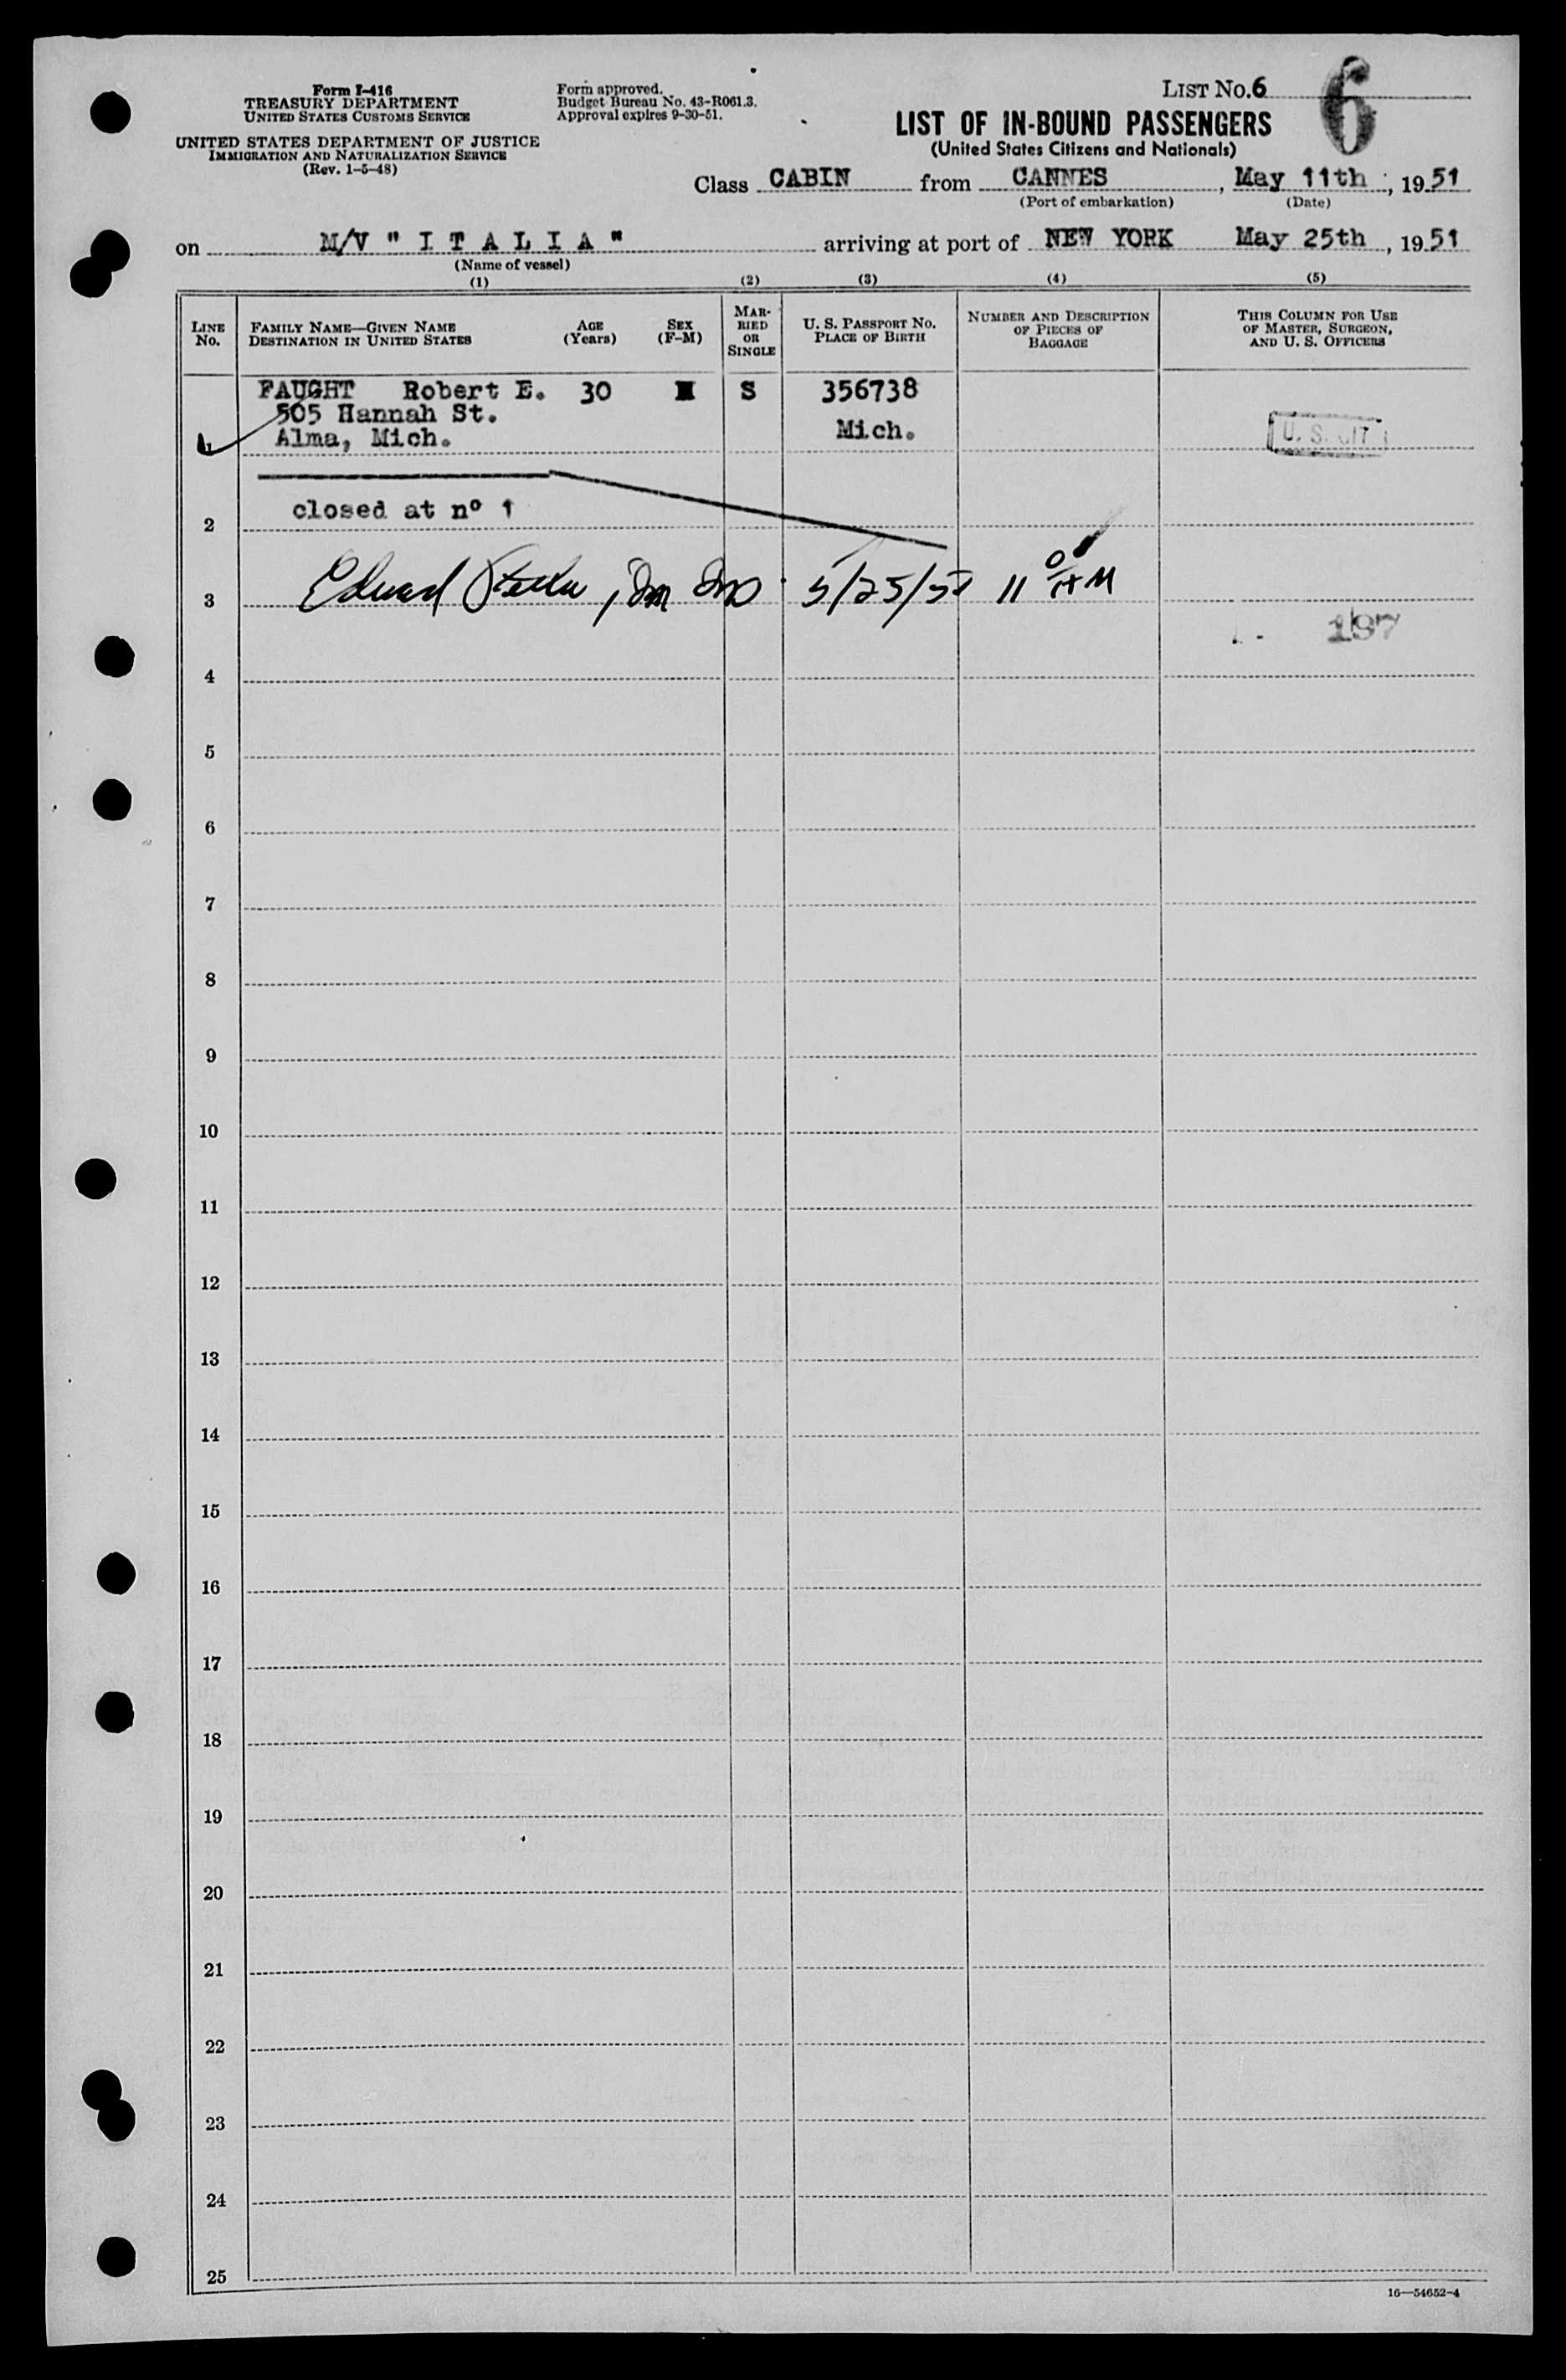 Form I-416
TREASURY DEPARTMENT
UNITED STATES CUSTOMS SERVICE
UNITED STATES DEPARTMENT OF JUSTICE
IMMIGRATION AND NATURALIZATION SERVICE
(Rev. 1-5-48)
Form approved.
Budget Bureau No. 43-R061.3.
Approval expires 9-30-51.
LIST No. 6
6
LIST OF IN-BOUND PASSENGERS
(United States Citizens and Nationals)
Class CABIN from CANNES, May 11th, 1951
(Port of embarkation) (Date)
on M/V " I T A L I A " arriving at port of NEW YORK May 25th, 1951
(Name of vessel)
(1) (2) (3) (4) (5)
LINE No.
FAMILY NAME—GIVEN NAME
DESTINATION IN UNITED STATES
AGE (Years)
SEX (F-M)
MARRIED OR SINGLE
U. S. PASSPORT No.
PLACE OF BIRTH
NUMBER AND DESCRIPTION OF PIECES OF BAGGAGE
THIS COLUMN FOR USE OF MASTER, SURGEON, AND U. S. OFFICERS
FAUGHT Robert E. 30 M S 356738
505 Hannah St.
1 Alma, Mich. Mich. U. S. CIT
closed at nº 1
2
3 5/25/51 11 AM
197
4
5
6
7
8
9
10
11
12
13
14
15
16
17
18
19
20
21
22
23
24
25
16—54652-4